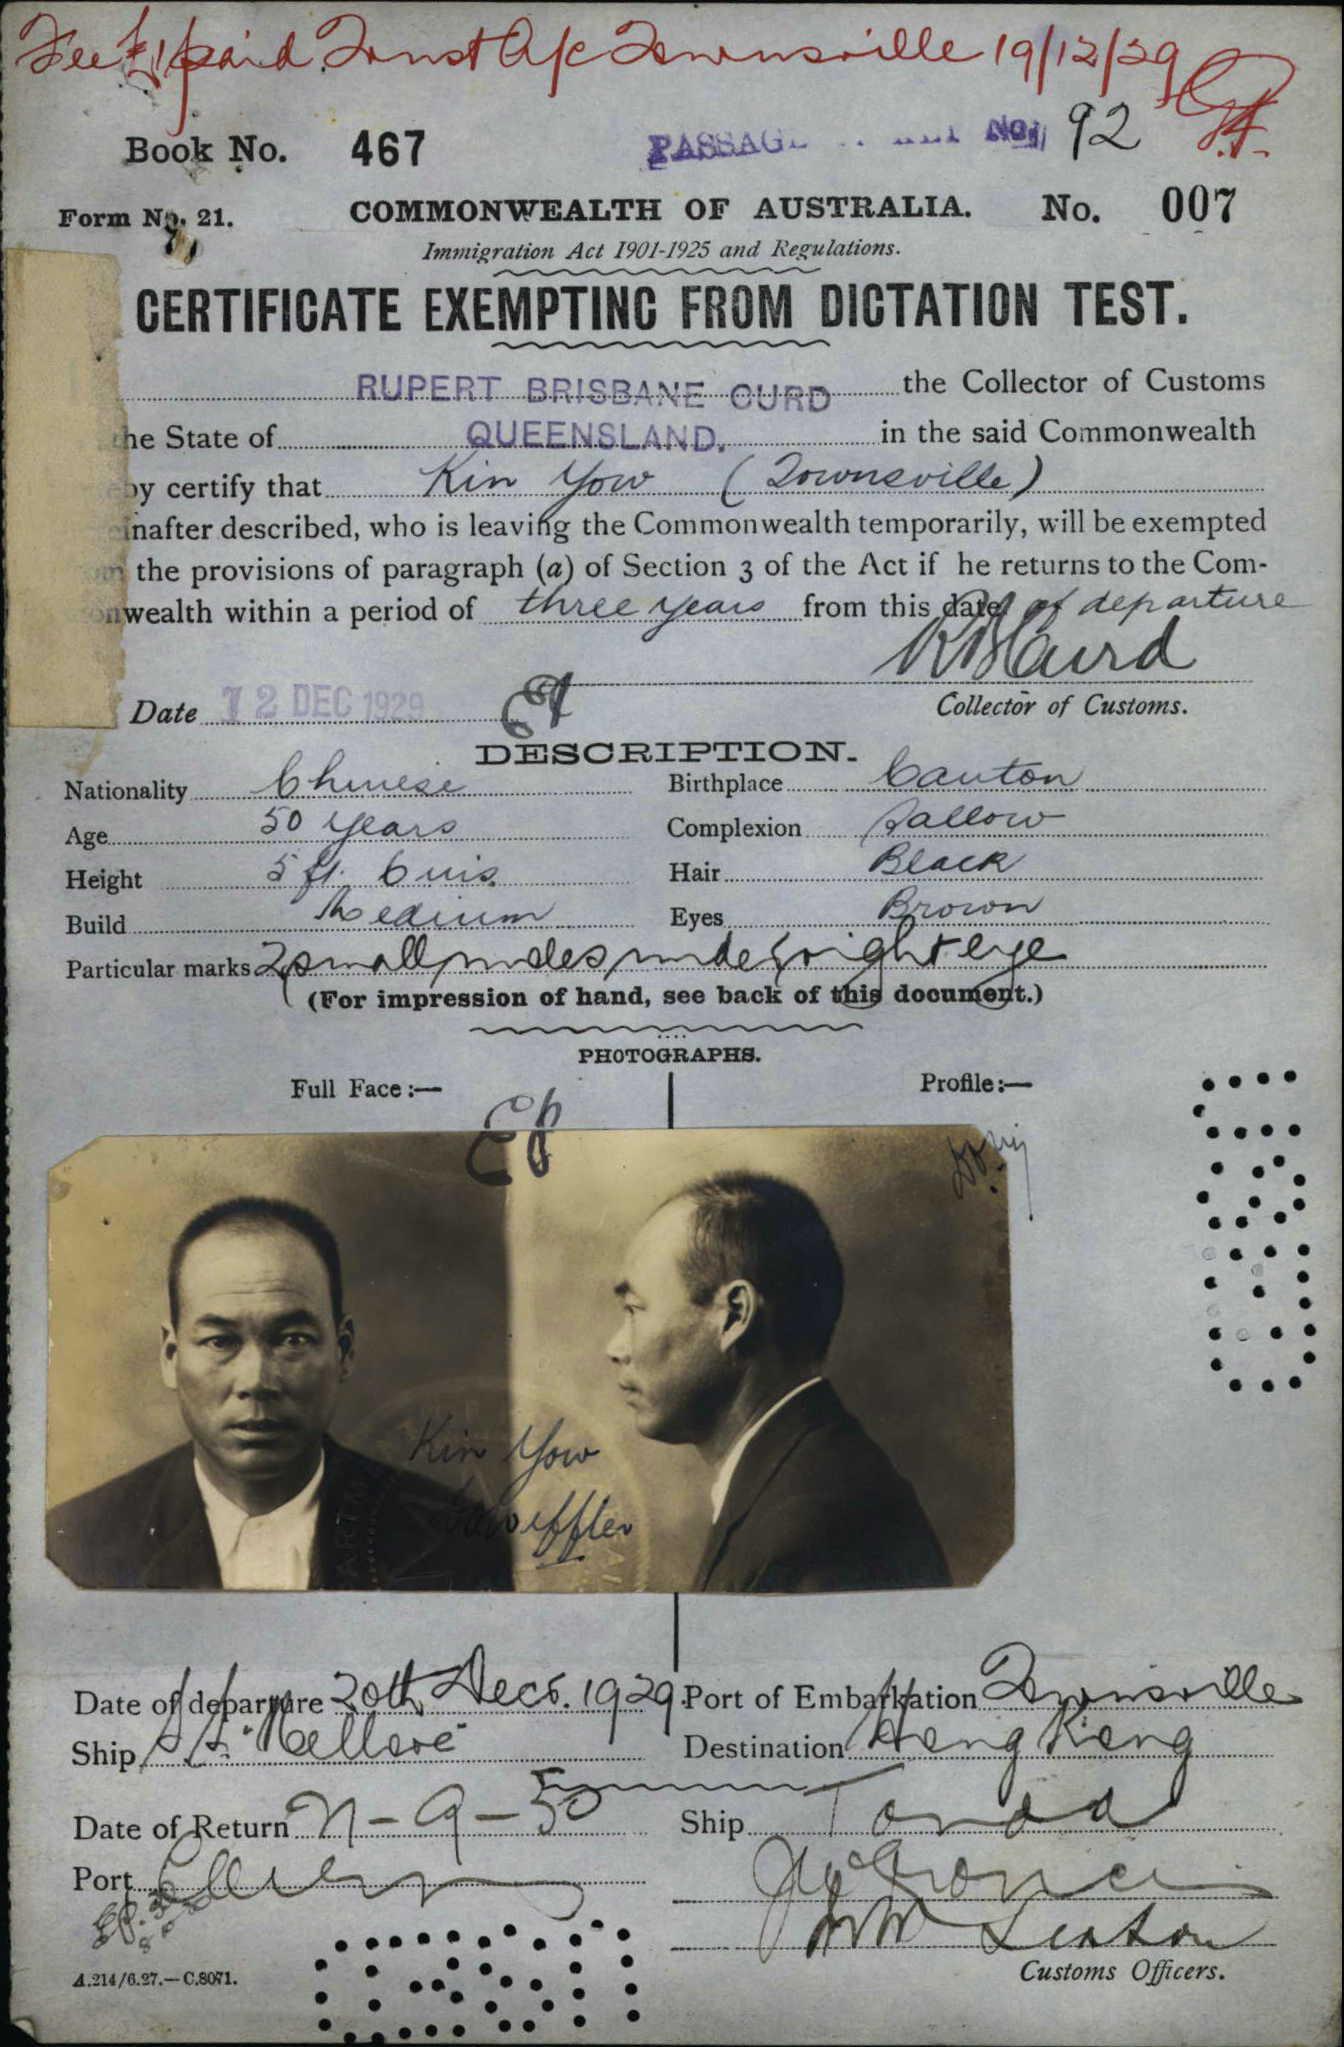 Fee £1 paid Trust A/c Townsville 19/12/29
Book No. 467 PASSAGE No. 92
Form No. 21. COMMONWEALTH OF AUSTRALIA. No. 007
Immigration Act 1901-1925 and Regulations.
CERTIFICATE EXEMPTING FROM DICTATION TEST.
RUPERT BRISBANE CURD the Collector of Customs
the State of QUEENSLAND. in the said Commonwealth
eby certify that Kin Yow (Townsville)
einafter described, who is leaving the Commonwealth temporarily, will be exempted
om the provisions of paragraph (a) of Section 3 of the Act if he returns to the Com-
onwealth within a period of three years from this date of departure
RB Curd
Date 12 DEC 1929 Collector of Customs.
DESCRIPTION.
Nationality Chinese Birthplace Canton
Age 50 years Complexion Sallow
Height 5 ft. 6 ins. Hair Black
Build Medium Eyes Brown
Particular marks 2 small moles under right eye
(For impression of hand, see back of this document.)
PHOTOGRAPHS.
Full Face:— Profile:—
Kin Yow
Date of departure 20th Decr. 1929. Port of Embarkation Townsville
Ship S.S. "Nellore" Destination Hong Kong
Date of Return Ship Tanda
Port
Customs Officers.
A.214/6.27.—C.8071.